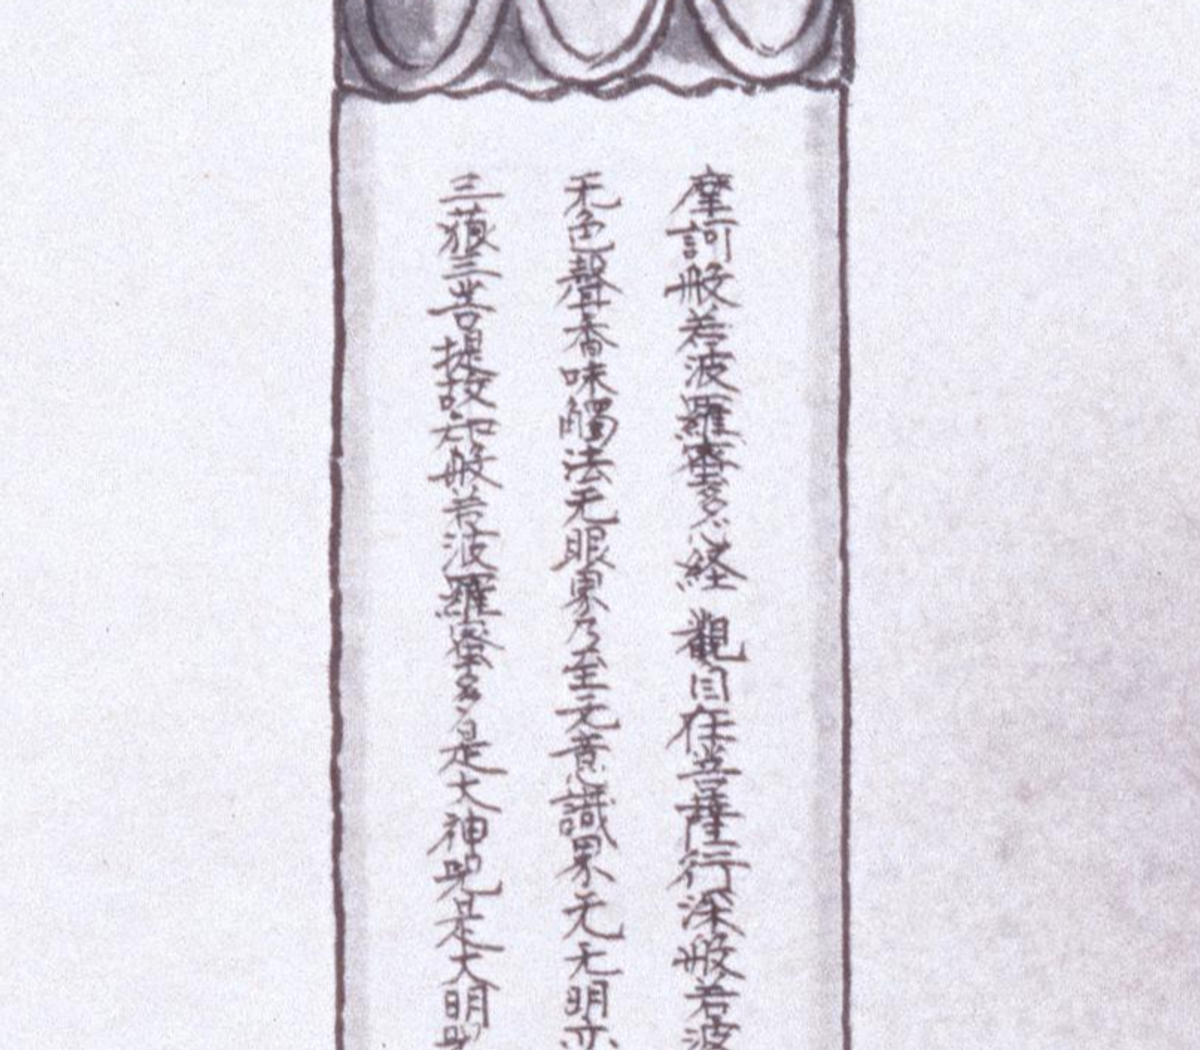 摩訶般若波羅蜜多心経 觀自在菩薩行深般若波
无色聲香味觸法无眼界乃至无意識界无无明亦
三藐三菩提故知般若波羅蜜多是大神咒是大明咒